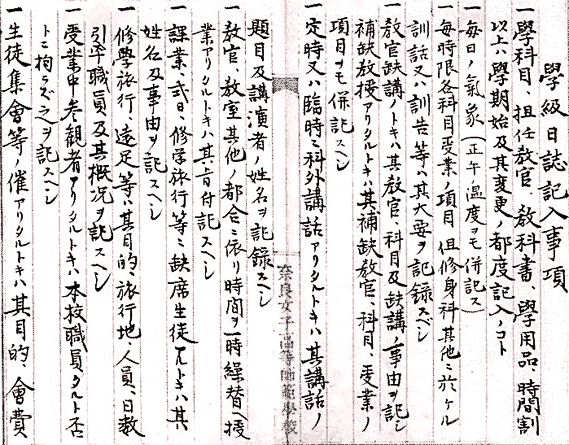 學級日誌記入事項
一學科目、担任教官、教科書、學用品、時間割
以六學期始及其変更ノ都度記入ノコト
一毎日ノ氣象(正午温度ヲモ併記ス)
一毎時限各科目受業ノ項目但修身科其他ニ於ケル
訓話又ハ訓告等ハ其大要ヲ記録スベシ
一教官缺講ノトキハ其教官、科目及缺講ノ事由ヲ記シ
補缺教授アリタルトキハ其補缺教官、科目、受業ノ
項目ヲモ併記スヘシ
一定時又ハ臨時ニ科外講話アリタルトキハ其講話ノ
題目及講演者ノ姓名ヲ記録スヘシ
一教官、教室其他ノ都合ニ依リ時間ヲ一時繰替ヘ授
業アリタルトキハ其旨付記スヘシ
一課業、式日、修学旅行等ニ缺席生徒アルトキハ其
姓名及事由ヲ記スヘシ
一修學旅行、遠足等ハ其目的、旅行地、人員、日数
引率職員及其概況ヲ記スヘシ
一受業中参観者アリタルトキハ本校職員タルト否
トニ拘ラズ之ヲ記スヘシ
一生徒集會等ノ催アリタルトキハ其目的、會費
奈良女子高等師範學校